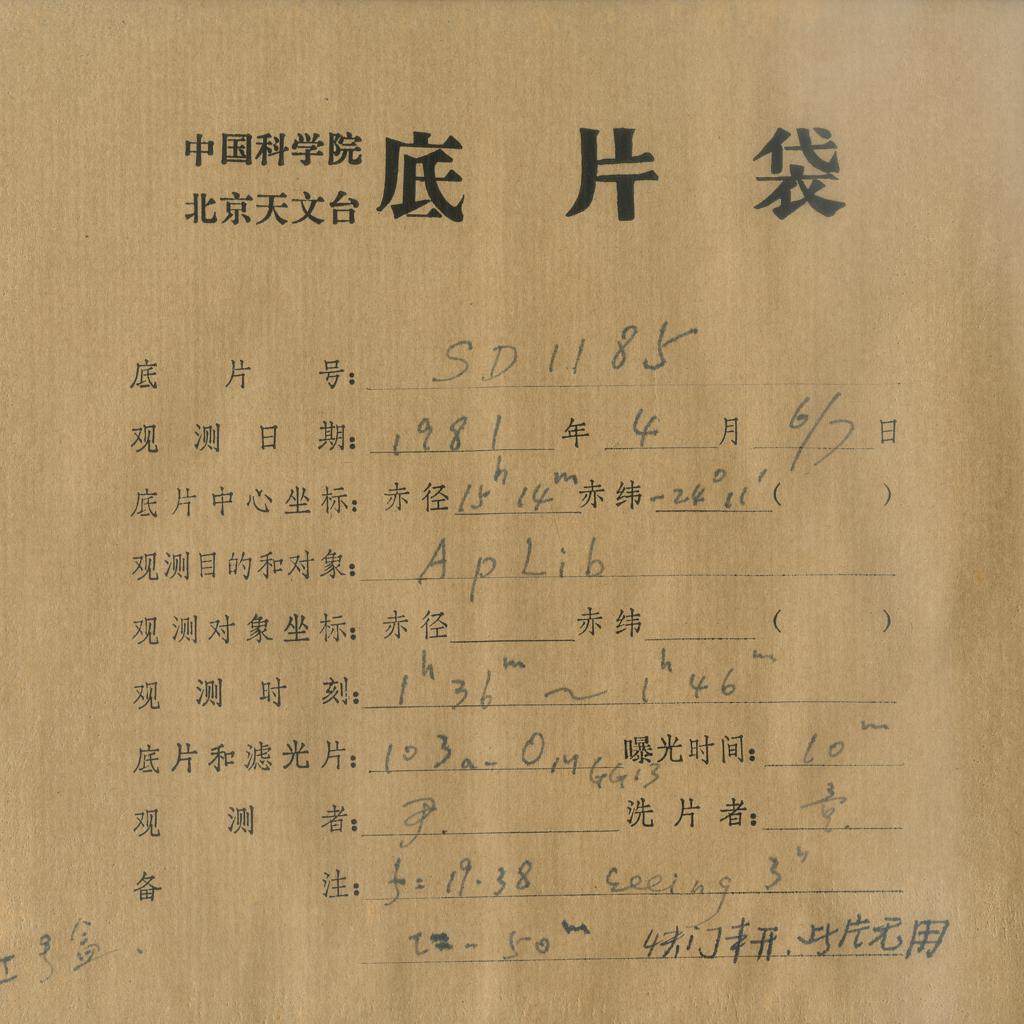 中国科学院
北京天文台
底片袋
底片号: SD1185
观测日期: 1981年4月6/7日
底片中心坐标: 赤径15h14m赤纬-24°11′( )
观测目的和对象: Ap Lib
观测对象坐标: 赤径 赤纬 ( )
观测时刻: 1h36m~1h46m
底片和滤光片: 103a-O, GG13 曝光时间: 10m
观测者: 尹. 洗片者:
备注: f=19.38 seeing 3″
t=-50m 快门未开.此片无用
号盒.